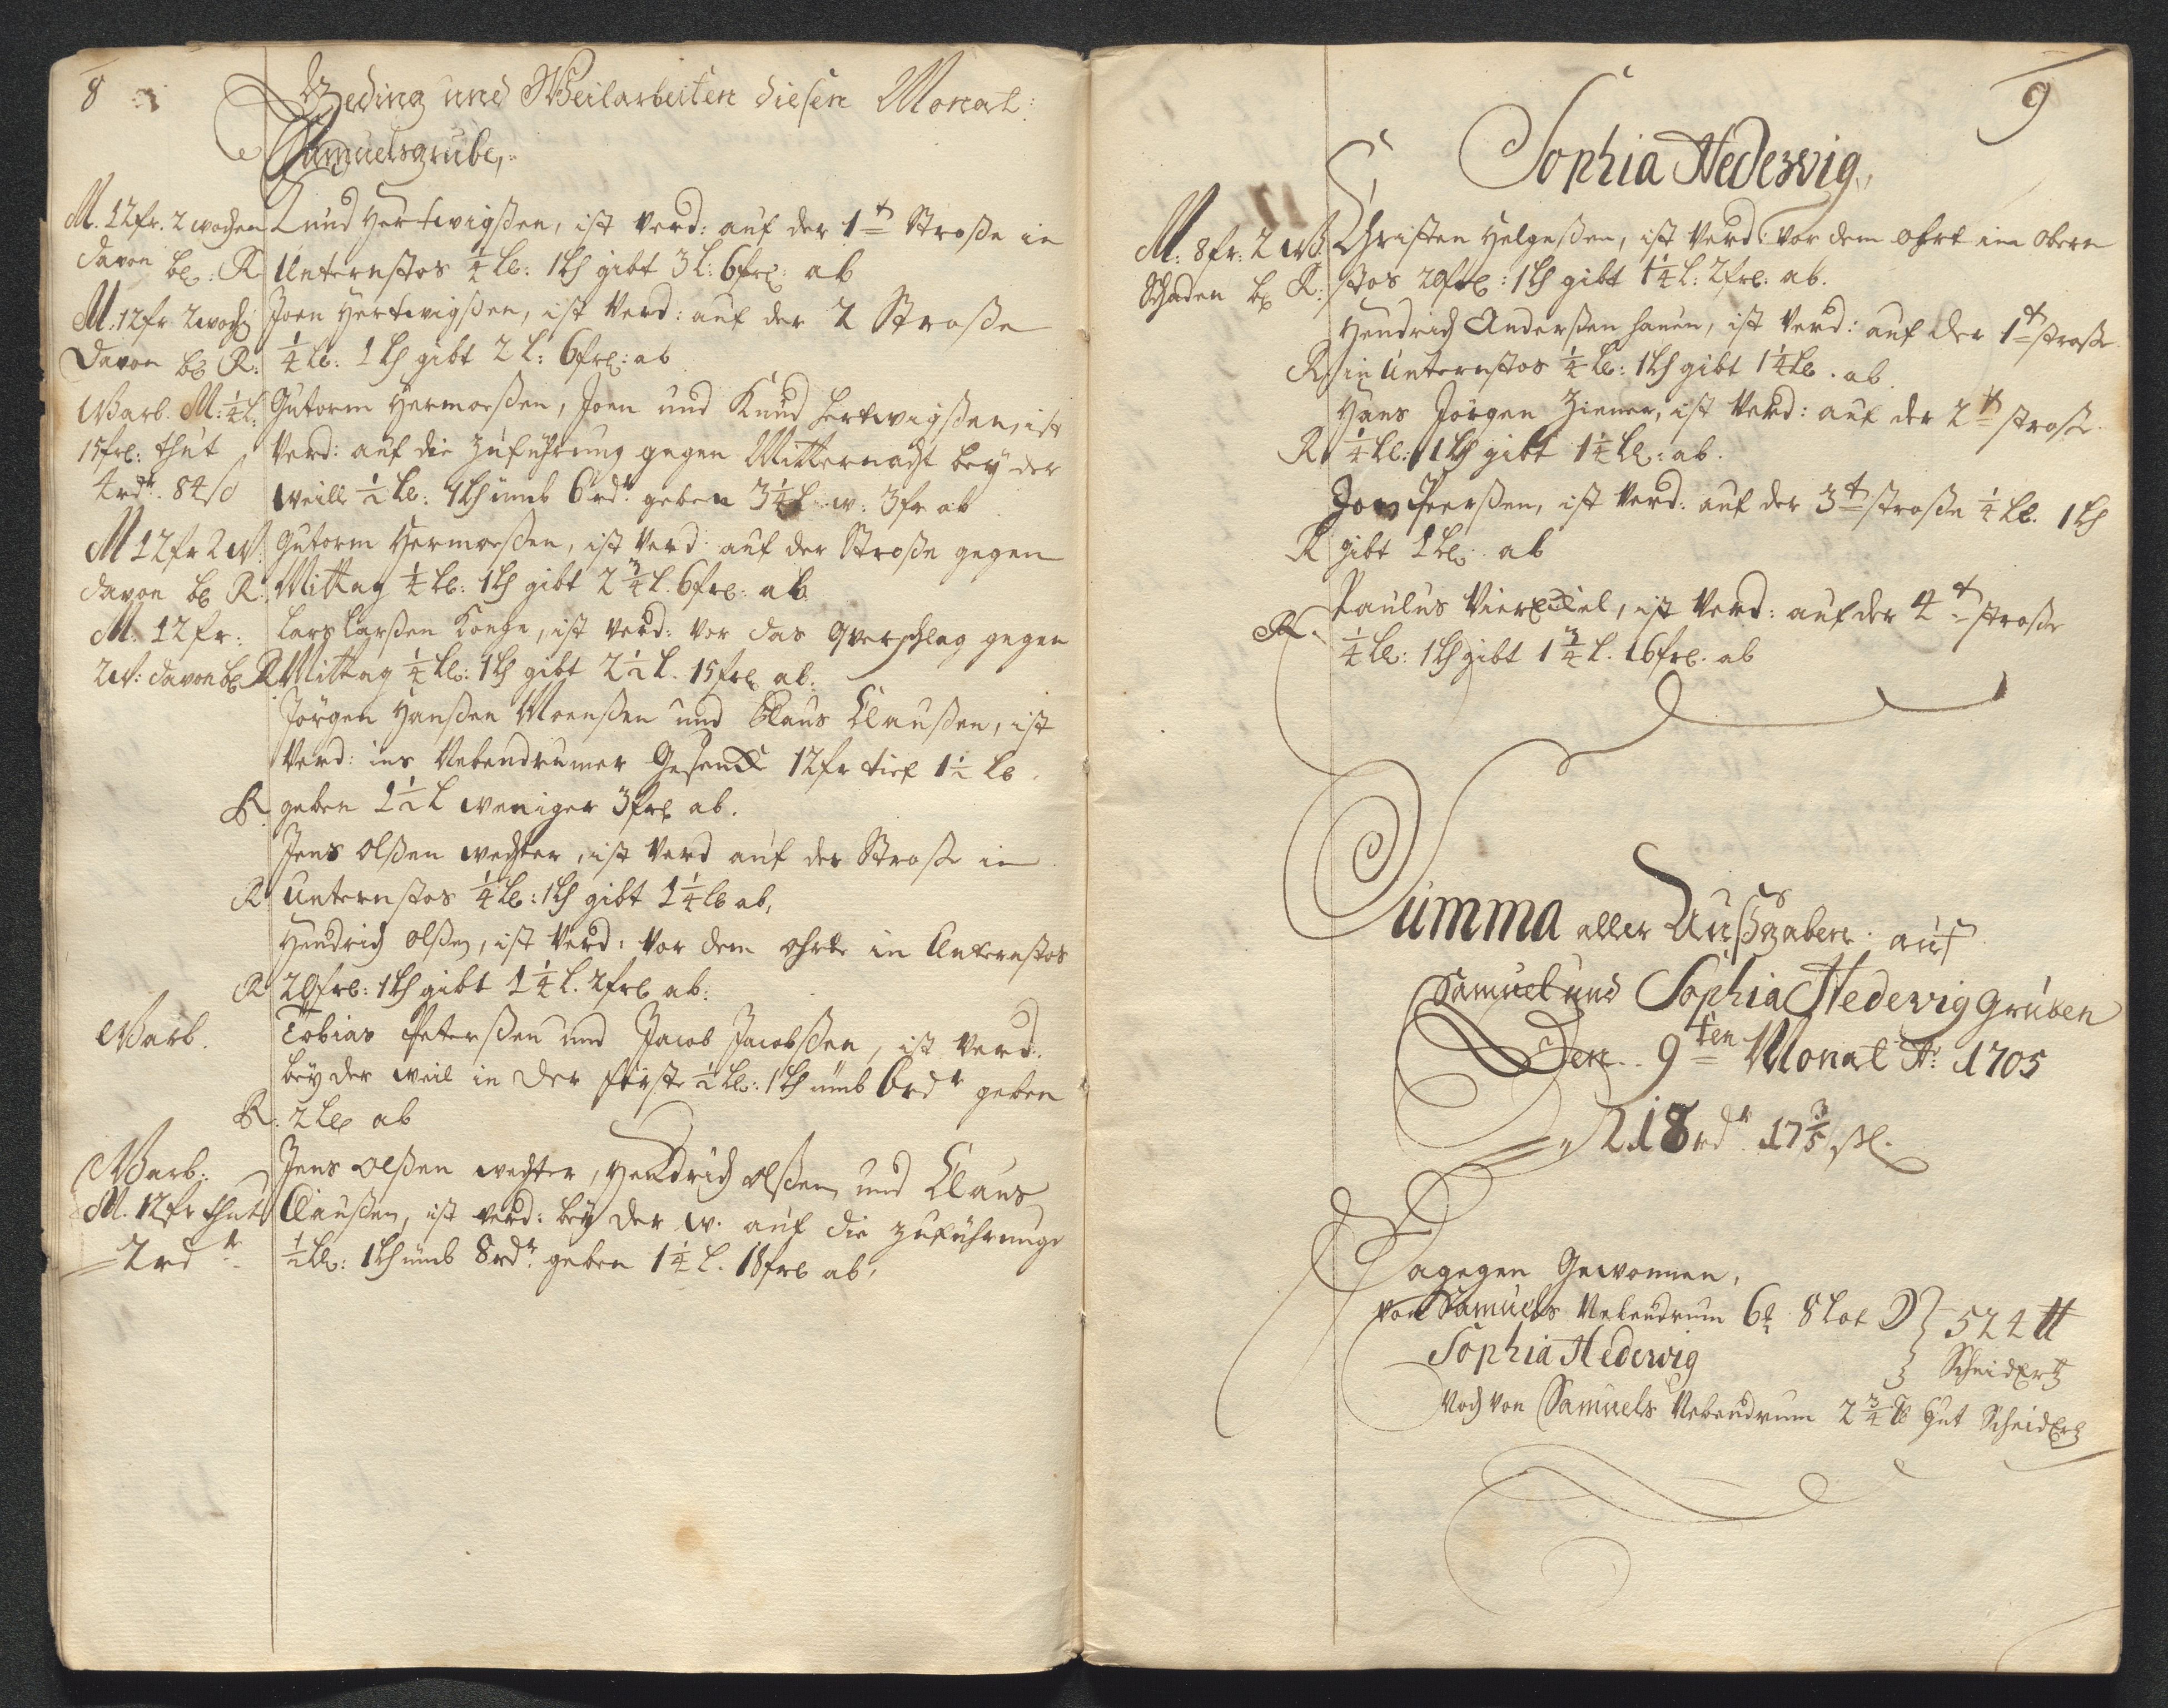 8
Geding und Weilarbeiten diesen Monat:
Samuelsgrube,
M. 12fr. 2 wochen
davon bl: R
Knud Hertwigßen, ist Verd: auf der 1t Stroße in
Unterstos ¼ Ll: 1Lh gibt 3 L: 6frl: ab
M. 12fr 2woch
davon bl R:
Joen Hertwigßen, ist Verd: auf der 2 Stroße
¼ Ll: 1Lh gibt 2 L: 6frl: ab
Warb. M: ¼L:
15frl: thut
4rdr. 84ß
Gutorm Hermoeßen, Joen und Knud Hertwigßen, ist
Verd: auf die Zuführung gegen Mitternacht bey der
weill ½ Ll: 1Lh umb 6rdr. geben 3¼L w: 3fr ab
M 12fr 2W:
davon bl R:
Gutorm Hermoeßen, ist Verd: auf der Stroße gegen
Mittag ¼ Ll: 1Lh gibt 2¾ L. 6frl: ab.
M. 12fr:
2W: davon bl R
Lars Larßen Konge, ist Verd: vor das Qverschlag gegen
Mittag ¼ Ll: 1Lh gibt 2½ L. 15frl ab.
Jörgen Hanßen Moenßen und Claus Claußen, ist
Verd: ins Nebendrumer Gesenk 12fr tief 1½ Ll
R. geben 1½ L weniger 3frl ab.
Jens Olßen wechter, ist Verd auf der Stroße in
R Unterstos ¼ Ll: 1Lh gibt 1¼ Ll ab,
Hendrich Olßen, ist Verd: vor dem ohrte in Unterstos
R 20frl: 1Lh gibt 1¼ L. 2frl ab:
Warb.
Tobias Peterßen und Jacob Jacobßen, ist Verd.
bey der weil in derförste ½ Ll: 1Lh umb 6rdr geben
R: 2 Ll ab
Warb:
M. 12fr thut
2rdr.
Jens Olßen wechter, Hendrich Olßen und Claus
Claußen, ist Verd: bey der w. auf die Zuführunge
½ Ll: 1Lh umb 8rdr. geben 1¼ L. 18frl ab,
9
Sophia Hedewig,
M. 8fr: 2 W
Schaden bl R:
Christen Helgeßen, ist Verd: vor dem ohrt im obern
stos 20frl: 1Lh gibt 1¼ L: 2frl: ab.
Hendrich Anderßen Hauen, ist Verd: auf der 1t stroße
R in Unterstos ¼ Ll: 1Lh gibt 1¼ Ll. ab.
Hans Jörgen Ziener, ist Verd: auf der 2t stroße
R ¼ Ll: 1Lh gibt 1½ Ll: ab.
Jon Peerßen, ist Verd: auf der 3t stroße ¼ Ll. 1Lh
R gibt 1 Ll: ab
Paulus Vierziel, ist Verd: auf der 4t stroße
R. ¼ Ll: 1Lh gibt 1¾ L. 16frl. ab
Summa aller Außgaben auf
Samuel und Sophia Hedewig gruben
Den 9ten Monat Ao: 1705
218rdr. 17⅗ ßl.
Dagegen Gewonnen,
Von Samuels Nebendrum 6 8 Lot 524 ℔
Sophia Hedewig Scheidertz
Noch von Samuels Nebendrum 2¾ ℔ Gut Scheidertz